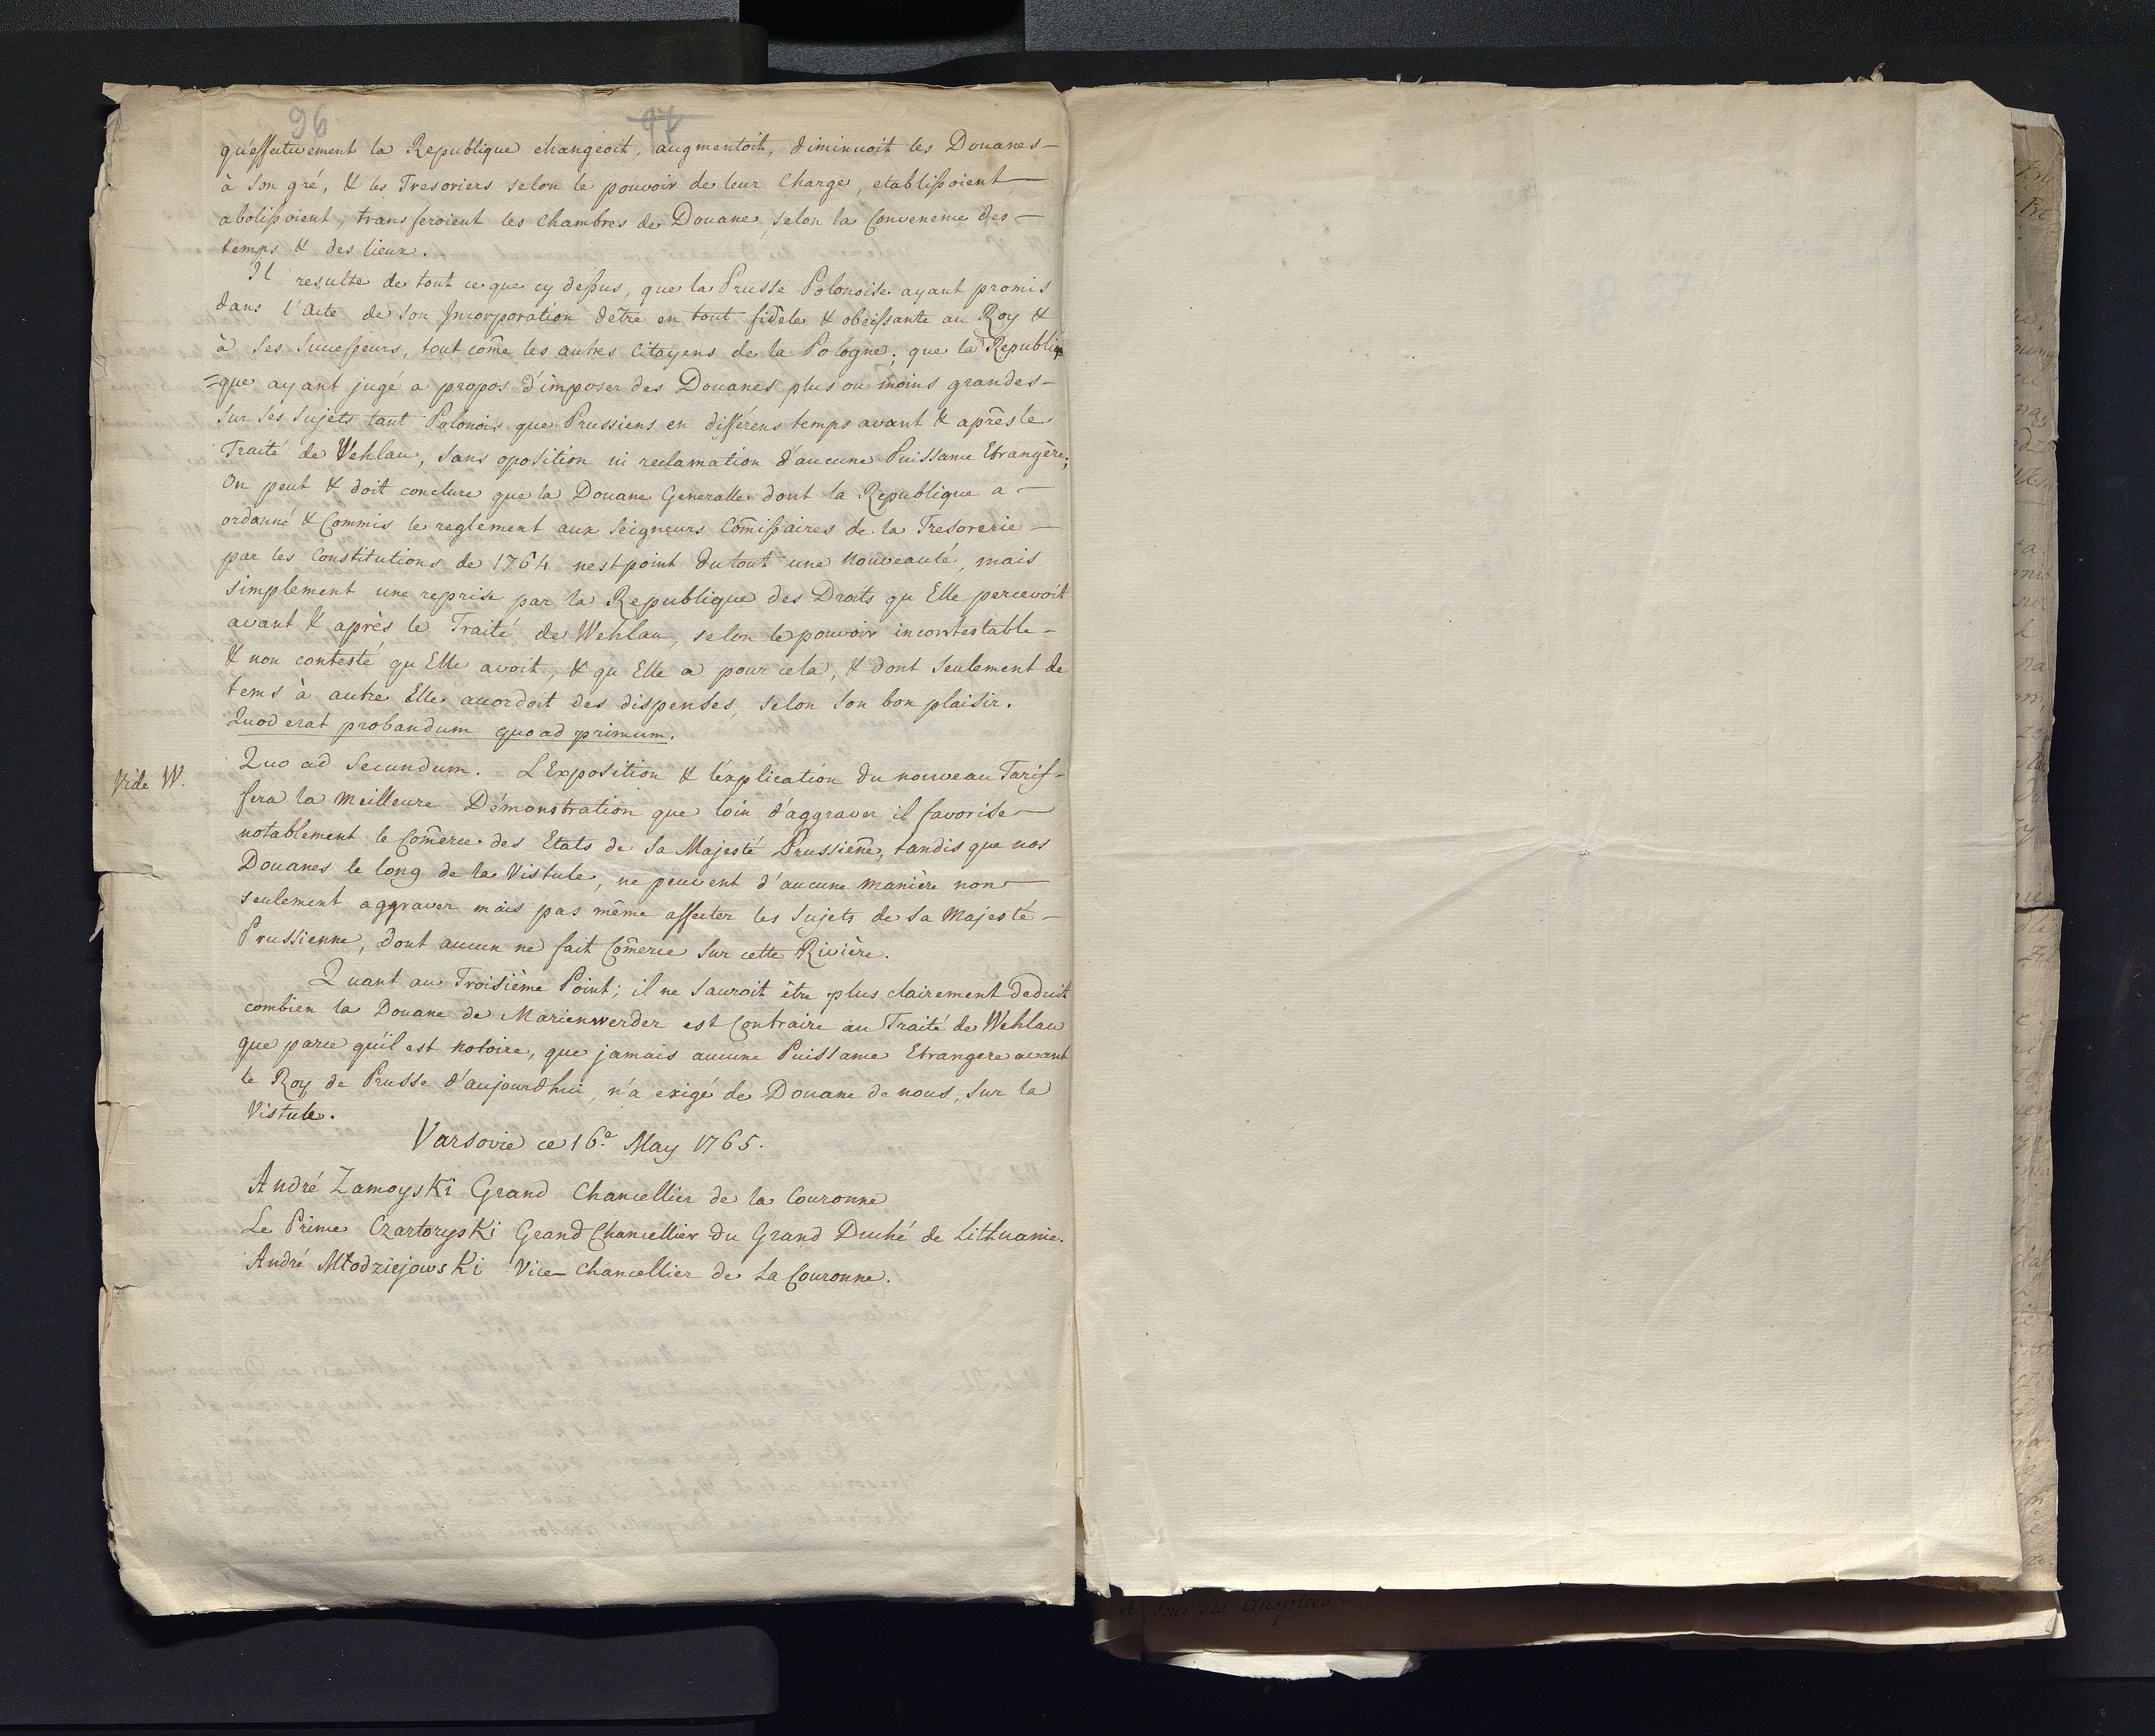 96
97
qu'effectivement la Republique changeoit, augmentoit, diminuoit les Douanes
à son gré, & les Tresoriers selon le pouvoir de leur Charge, etablissoient
abolissoient, transferoient les Chambres de Douane, selon la Convenence des
temps & des lieux.
Il resulte de tout ce que cy dessus, que la Prusse Polonoise ayant promis
dans l'Acte de Son Incorporation d'être en tout fidèle & obéissante au Roy &
à Ses Successeurs, tout come les autres Citoyens de la Pologne; que la Republi
=que ayant jugé a propos d'imposer des Douanes plus ou moins grandes
sur ses Sujets tant Polonois que Prussiens en différens temps avant & après le
Traité de Wehlau, sans oposition ni reclamation d'aucune Puissance Etrangère;
On peut & doit conclure que la Douane Generalle dont la Republique a
ordonné & Commis le reglement aux Seigneurs Comissaires de la Tresorerie
par les Constitutions de 1764 nest point du tout une nouveauté, mais
simplement une reprise par la Republique des Droits qu Elle percevoit
avant & après le Traité de Wehlau, selon le pouvoir incontestable
& non contesté qu Elle avoit, & qu Elle a pour cela, & dont Seulement de
tems à autre Elle accordoit des dispenses, selon Son bon plaisir.
Quod erat probandum quo ad primum.
Vide W.
Quo ad Secundum. L'Exposition & l'explication du nouveau Tarif
sera la meilleure Démonstration que loin d'aggraver il favorise
notablement le Comerce des Etats de Sa Majesté Prussiene, tandis que nos
Douanes le long de la Vistule, ne peuvent d'aucune manière non
seulement aggraver mais pas même affecter les Sujets de Sa Majesté
Prussienne, dont aucun ne fait Comerce Sur cette Rivière.
Quant au Troisième Point; il ne Sauroit être plus clairement deduit
combien la Douane de Marienwerder est Contraire au Traité de Wehlau
que parce qu'il est notoire, que jamais aucune Puissance Etrangere avant
le Roy de Prusse d'aujourdhui, n'a exigé de Douane de nous, Sur la
Vistule.
Varsovie ce 16e May 1765.
André Zamoyski Grand Chancellier de la Couronne
Le Prince Czartoryski Grand Chancellier du Grand Duché de Lithuanie.
André Młodziejowski Vice-Chancellier de La Couronne.
et sous ses Auspices.